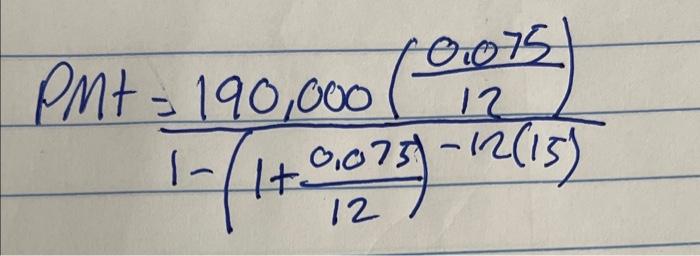 PMt = 190,000 (0.075/12)
1-(1+0.075/12)-12(15)